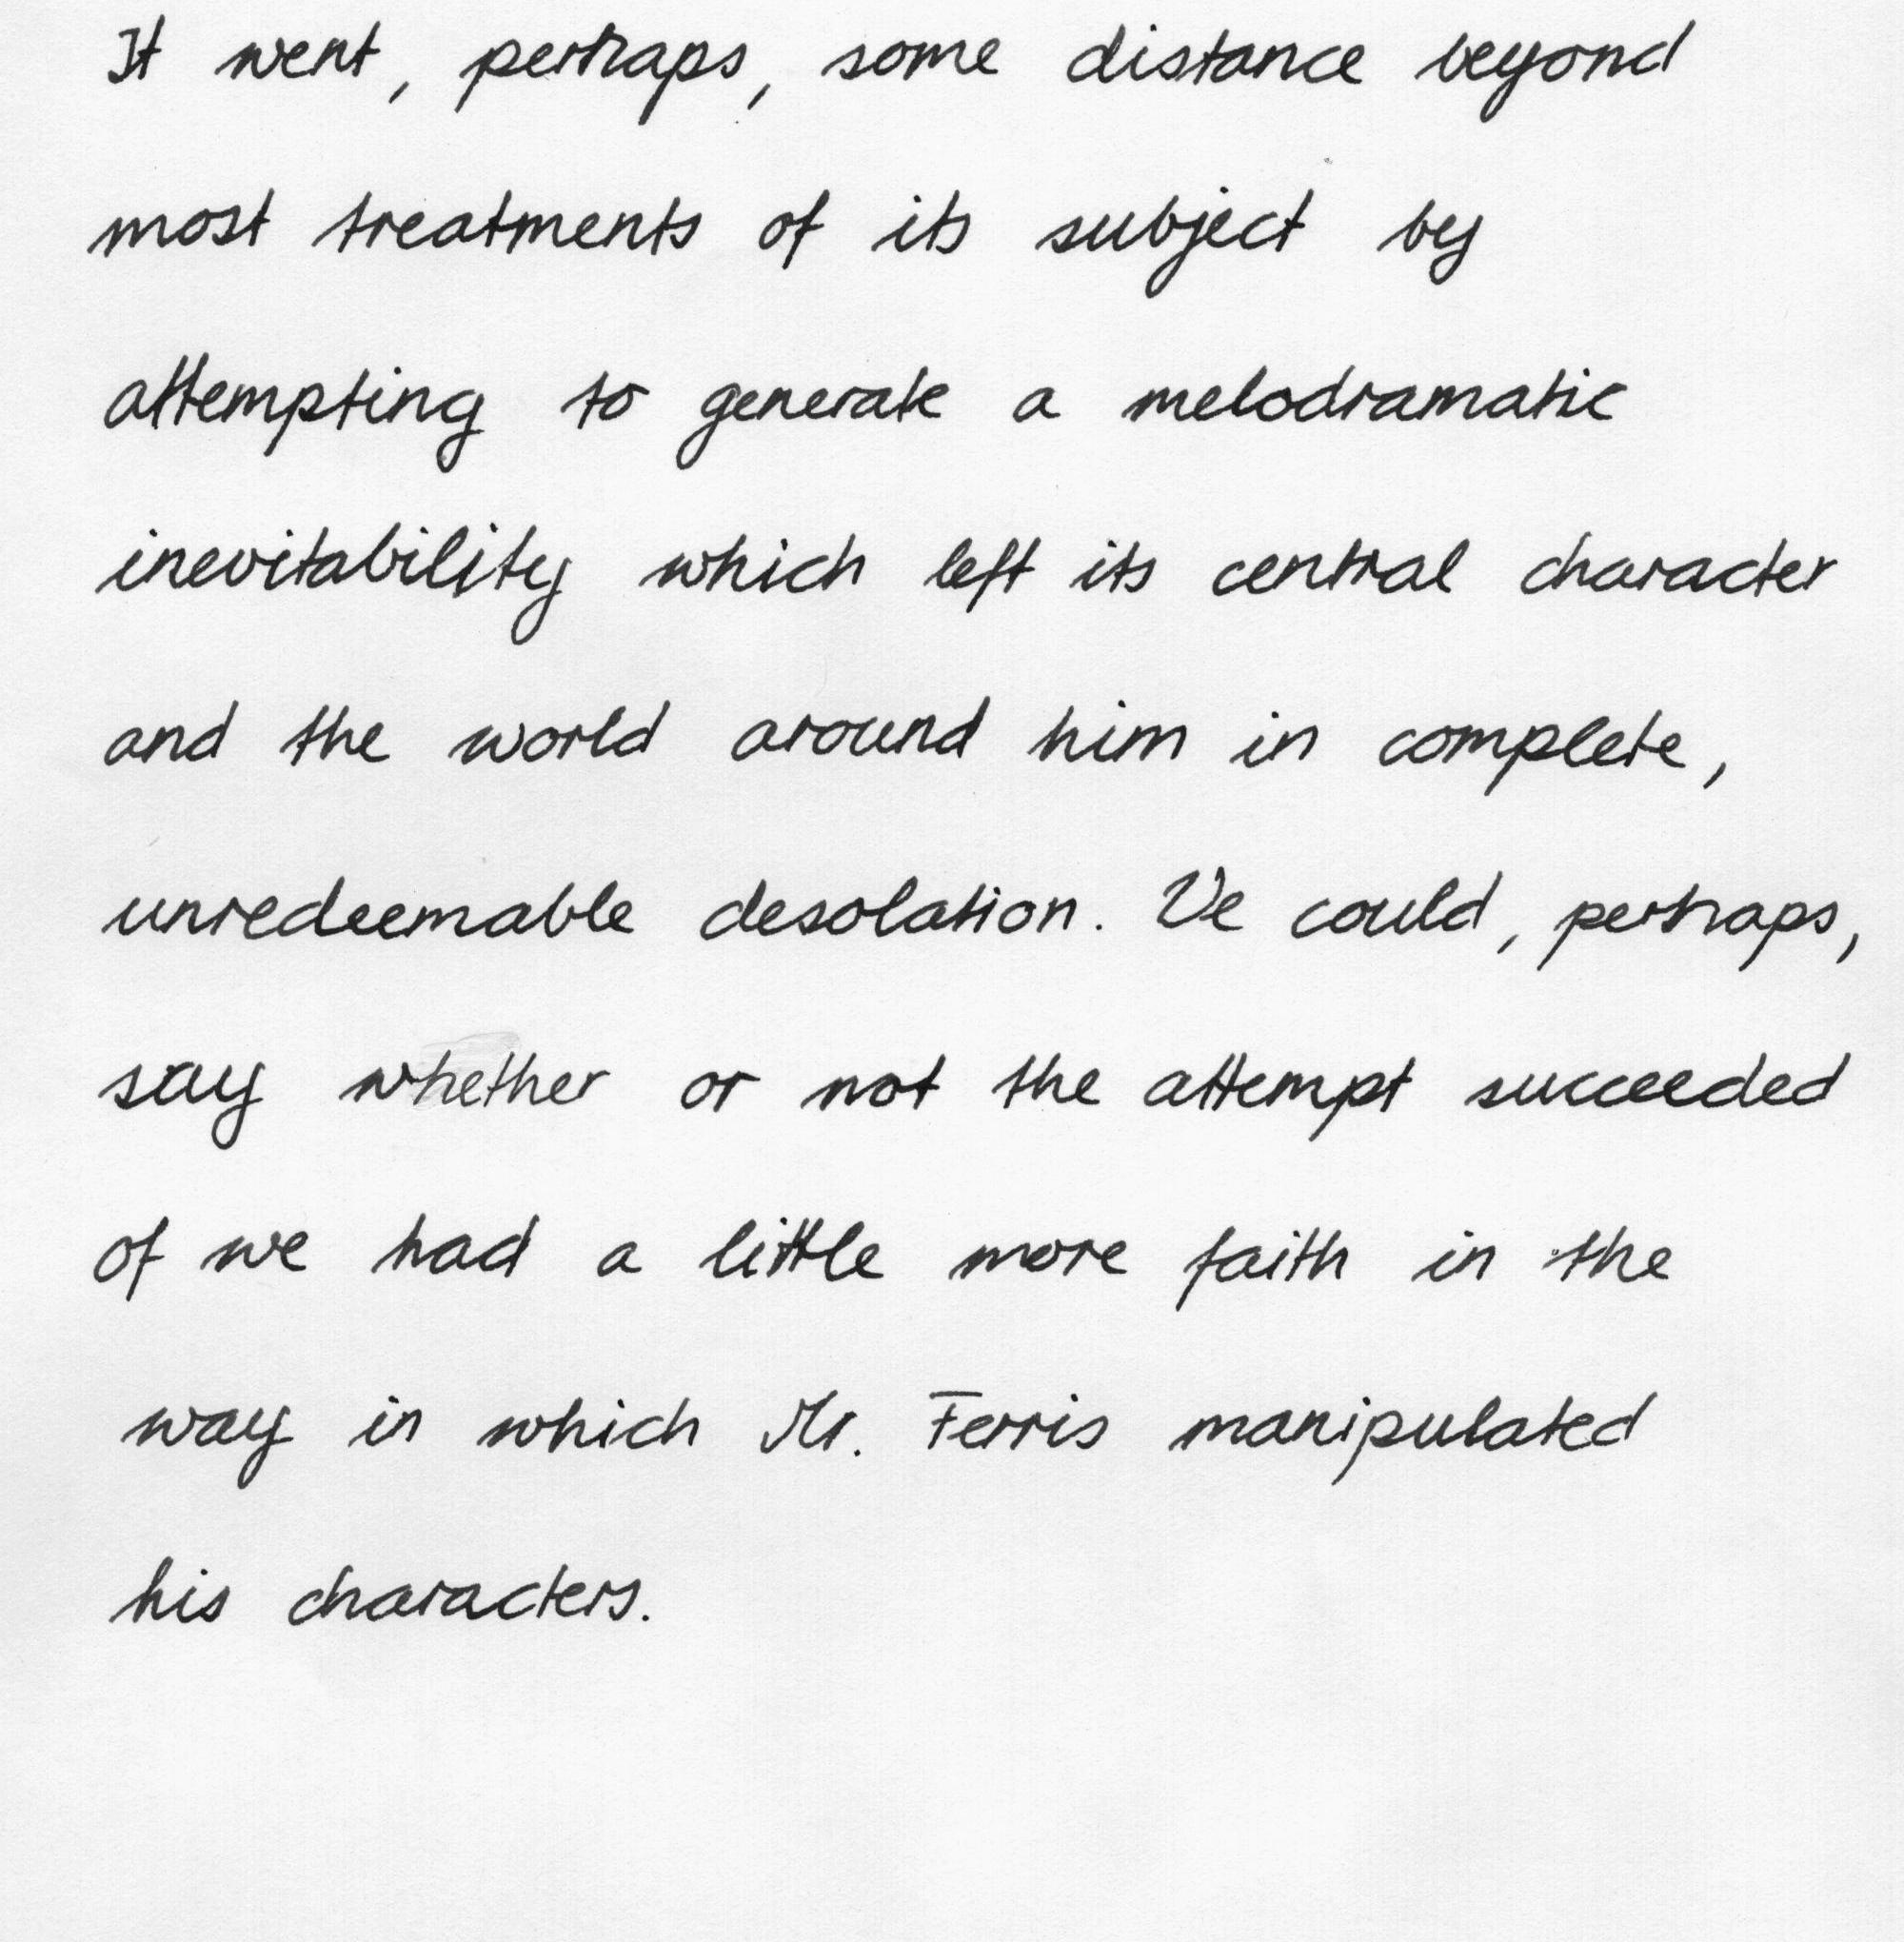 It went, perhaps, some distance beyond
most treatments of its subject by
attempting to generate a melodramatic
inevitability which left its central character
and the world around him in complete,
unredeemable desolation. Ve could, perhaps,
say whether or not the attempt succeeded
of we had a little more faith in the
way in which Mr. Ferris manipulated
his characters.